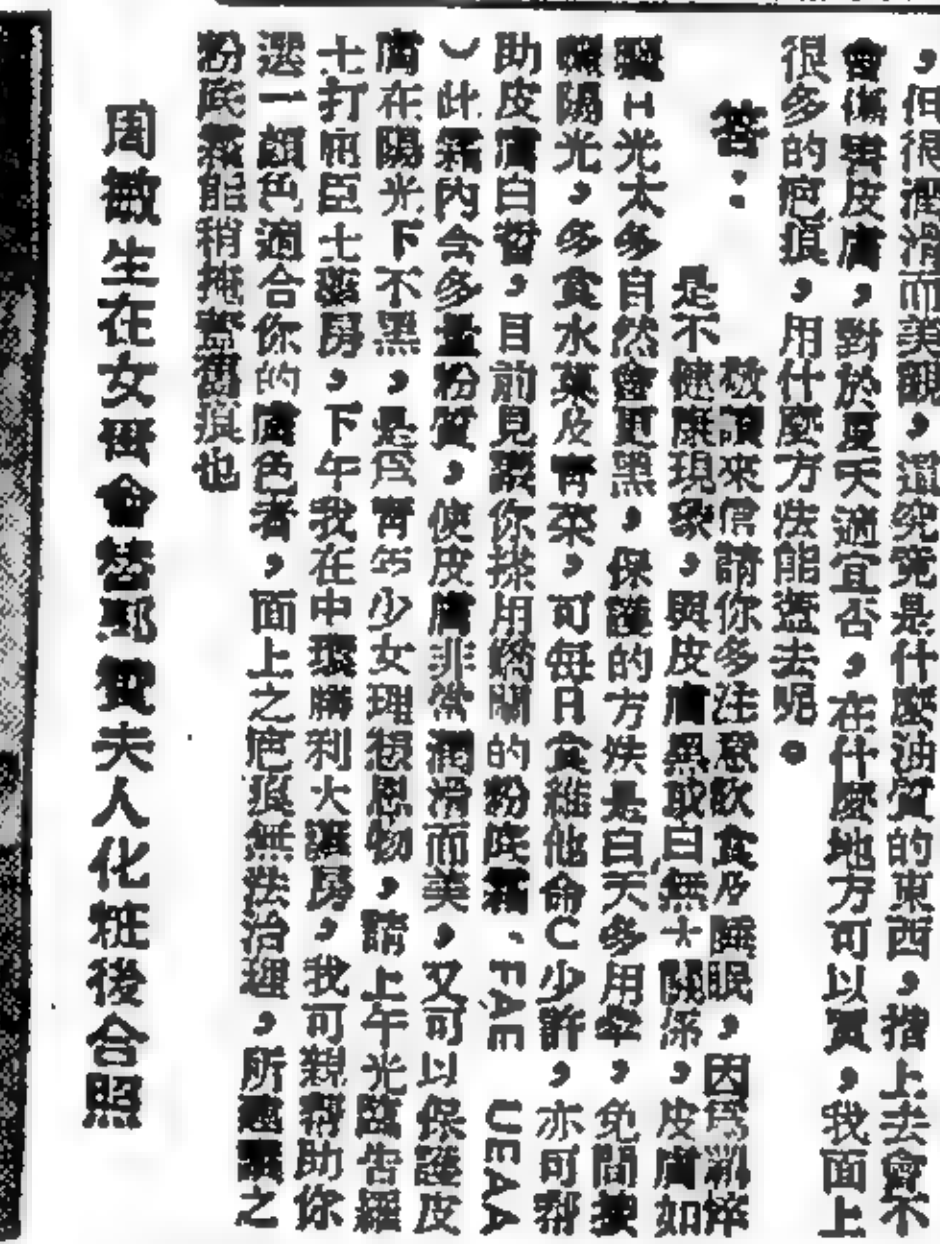 ，但很潤滑而美觀，這究竟是什麼油質的東西，搽上去會不
會傷害皮膚，對於夏天適宜否，在什麼地方可以買，我面上
很多的疤痕，用什麼方法能蓋去呢。
答：
敬讀來信請你多注意飲食及睡眠，因為
是不健康現象，與皮膚黑或白無大關係，皮膚如
日光太多自然會更黑，保護的方法是白天多用傘，免
陽光，多食水菓及青菜，可每日食維他命C少許，亦可幫
助皮膚白晳，目前見聞你搽用嬌蘭的粉底霜、FAE UEAA
）此霜內含多量粉質，使皮膚非常潤滑而美，又可以保護皮
膚在陽光下不黑，是為青年少女理想恩物，請上午光臨告羅
士打屈臣士藥房，下午我在中環勝利大酒房，我可親幫助你
選一顏色適合你的膚色者，面上之疤痕無法治理，所選購之
粉底霜能稍掩蓋舊痕也
周敏生在女會替夫人化粧後合照